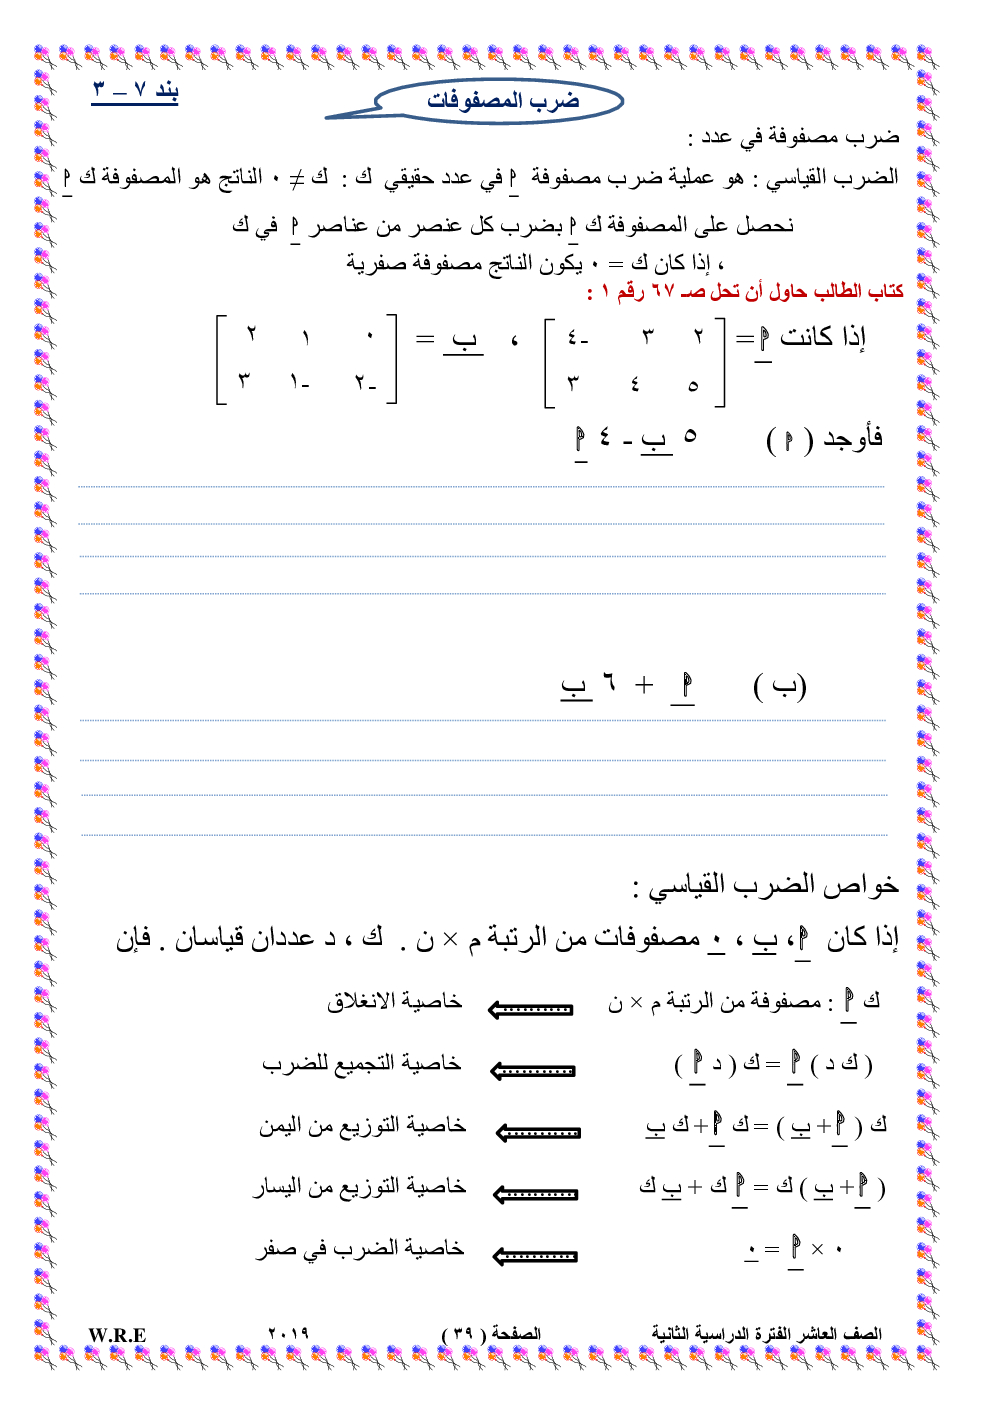 بند ٧ – ٣
ضرب المصفوفات
ضرب مصفوفة في عدد :
الضرب القياسي : هو عملية ضرب مصفوفة أ في عدد حقيقي ك : ك ≠ ٠ الناتج هو المصفوفة ك أ
نحصل على المصفوفة ك أ بضرب كل عنصر من عناصر أ في ك
، إذا كان ك = ٠ يكون الناتج مصفوفة صفرية
كتاب الطالب حاول أن تحل صـ ٦٧ رقم ١ :
إذا كانت أ = [ ٢ ٣ -٤ ] ، ب = [ ٠ ١ ٢ ]
[ ٥ ٤ ٣ ] [ -٢ -١ ٣ ]
فأوجد ( أ ) ٥ ب - ٤ أ
(ب ) أ + ٦ ب
خواص الضرب القياسي :
إذا كان أ ، ب ، ٠ مصفوفات من الرتبة م × ن . ك ، د عددان قياسان . فإن
ك أ : مصفوفة من الرتبة م × ن خاصية الانغلاق
( ك د ) أ = ك ( د أ ) خاصية التجميع للضرب
ك ( أ + ب ) = ك أ + ك ب خاصية التوزيع من اليمن
( أ + ب ) ك = أ ك + ب ك خاصية التوزيع من اليسار
٠ × أ = ٠ خاصية الضرب في صفر
الصف العاشر الفترة الدراسية الثانية الصفحة ( ٣٩ ) ٢٠١٩ W.R.E